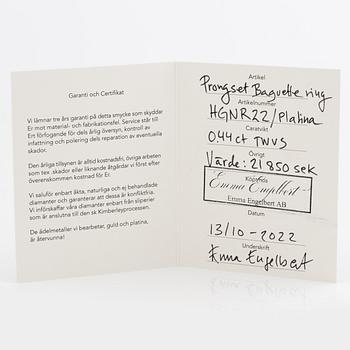 Garanti och Certifikat
Vi lämnar tre års garanti på detta smycke som skydder
Er mot material- och fabrikationsfel. Service står till
Ert förfogande för dels årlig översyn, kontroll av
infattning och polering dels reparation av eventuella
skador.
Den årliga tillsynen är alltid kostnadsfri, övriga arbeten
som tex .skador eller liknande åtgärdar vi först efter
överenskommen kostnad för Er.
Vi saluför enbart äkta, naturliga och ej behandlade
diamanter och garanterar att dessa är konfliktfria.
Vi införskaffar våra diamanter enbart från sliperier
som är anslutna till den sk Kimberleyprocessen.
De ädelmetaller vi bearbetar, guld och platina,
är återvunna!
Artikel
Prongset Baguette ring
Artikelnummer
HGNR22/Platina
Caratvikt
0,44ct TWVS
Övrigt
Värde: 21 850 sek
Köpt hos
Emma Engelbert
Emma Engelbert AB
Datum
13/10-2022
Underskrift
Emma Engelbert